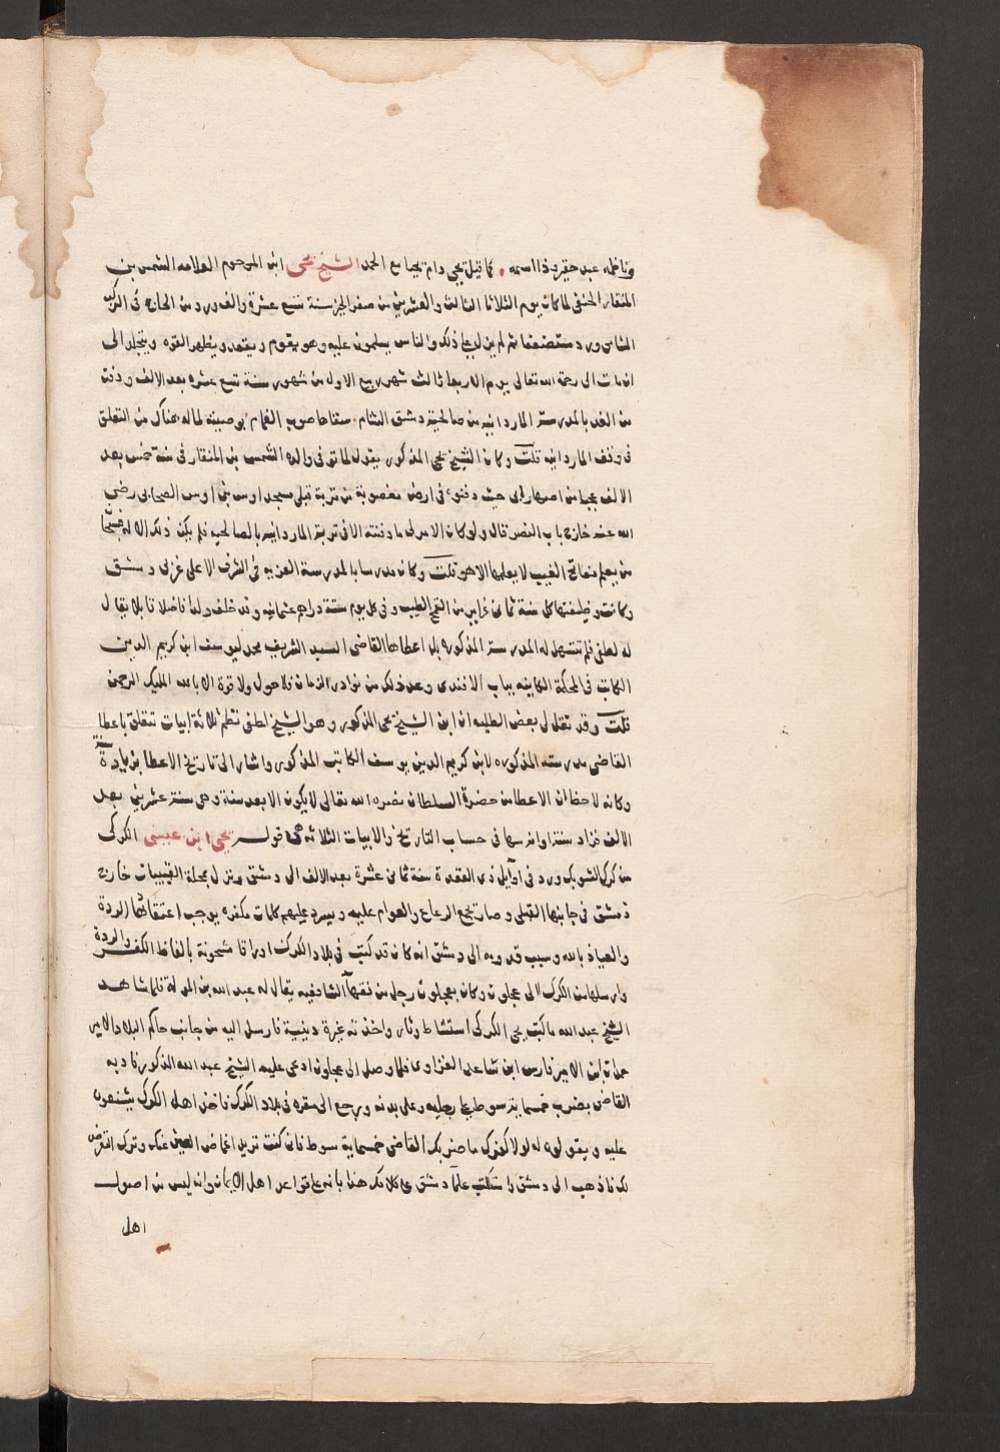 وناظمه عبد حقير ذا اسمه كما قيل يحيى دام يحيا مع الحمد الشيخ يحيى ابن المرحوم العلامه الشمس بن
المنقار الحنفي لما كان يوم الثلاثا الثالث والعشرين من صفر الخير سنة تسع عشرة والف ورد من الحاج في الركب
الشامي ورد مستضعفا ثم لم يزل يعالج ذلك والناس يسلمون عليه وهو يقوم ويقعد ويظهر القوه ويتجلد الى
ان مات الى رحمة الله تعالى يوم الاربعا ثالث شهر ربيع الاول من شهور سنة تسع عشره بعد الالف ودفن
من الغد بالمدرسة الماردانيه من صالحية دمشق الشام سقاها صوب الغمام بوصيته لما له هناك من التعلق
في وقف الماردانيه قلت وكان الشيخ يحيى المذكور يقول لما توفى والده الشمس بن المنقار في سنة خمس بعد
الالف عجبا من اصهار ابي حيث دفنوه في ارض مغصوبة من تربة قبلي مسجد اوس بن اوس الصحابي رضي
الله عنه خارج باب النصر قال ولو كان الامر لي ما دفنته الا في تربة الماردانيه بالصالحيه فلم يكن ذلك الا له
من يعلم مفاتح الغيب لا يعلمها الا هو قلت وكان مدرسا بالمدرسة العزيه في الشرف الاعلى غربي دمشق
وكانت وظيفتها كل سنة ثماني غراير من القمح الطيب وفي كل يوم ستة دراهم عثمانيه وقد خلف ولدا فاضلا قابلا يقال
له لطفي فلم تتسهل له المدرسة المذكوره بل اعطاها القاضي السيد الشريف محمد ليوسف ابن كريم الدين
الكاتب في المحكمة الكاينه بباب الافندى وعد ذلك من نوادر الزمان فلا حول ولا قوة الا بالله المليك الرحمن
قلت وقد نقل لي بعض الطلبه ان ابن الشيخ يحيى المذكور وهو الشيخ لطفي نظم ثلاثة ابيات تتعلق باعطا
القاضي مدرسته المذكوره لابن كريم الدين يوسف الكاتب المذكور واشار الى تاريخ الاعطا بزيادة سنة
وكانه لاحظ ان الاعطا من حضرة السلطان نصره الله تعالى لا يكون الا بعد سنة وهي سنة عشرين بعد
الالف فزاد سنة اوانه سها في حساب التاريخ والابيات الثلاثه هي قوله يحيى ابن عيسى الكركى
من كرك الشوبك ورد في اوايل ذي القعدة سنة ثماني عشرة بعد الالف الى دمشق ونزل بمحلة القبيبات خارج
دمشق في جانبها القبلي وصار يجمع الرعاع والعوام عليه ويسرد عليهم كلمات مكفره يوجب اعتقادها الردة
والعياذ بالله وسبب قدومه الى دمشق انه كان قد كتب في بلاد الكرك اوراقا مشحونة بالفاظ الكفر والردة
وارسلها من الكرك الى عجلون وكان بعجلون رجل من فقها الشافعيه يقال له عبد الله بن المدلة فلما شاهد
الشيخ عبد الله ما كتب يحيى الكركى استشاط وثار واخذته غيرة دينية فارسل اليه من جانب حاكم البلاد الامير
حمدان ابن الامير فارس ابن ساعد الغزاوى فلما وصل الى عجلون ادعى عليه الشيخ عبد الله المذكور فادبه
القاضي بضرب خمسماية سوط على رجليه وعلى بدنه ورجع الى مقره في بلاد الكرك فاخذ اهل الكرك يشنعون
عليه ويقولون له لولا كفرك ما ضربك القاضي خمسماية سوط فان كنت تريد اغماض العين عنك وترك التعرض
لك فاذهب الى دمشق واستكتب علما دمشق على كلامك هذا بانه على قواعد اهل الايمان وانه ليس من اصول
اهل